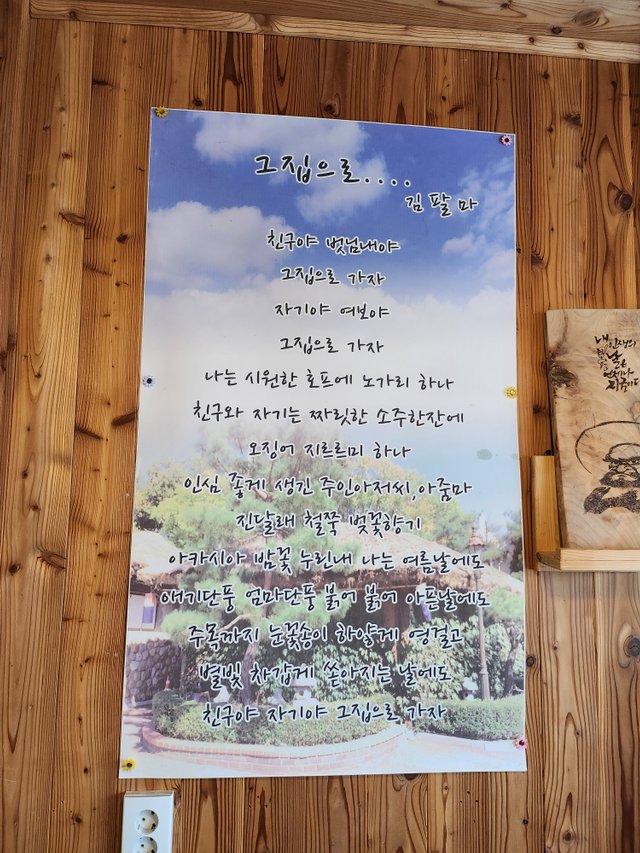 그집으로....
김팔마
친구야 벗님네야
그집으로 가자
자기야 여보야
그집으로 가자
나는 시원한 호프에 노가리 하나
친구와 자기는 짜릿한 소주한잔에
오징어 지르르미 하나
인심 좋게 생긴 주인아저씨,아줌마
진달래 철쭉 벚꽃향기
아카시아 밤꽃 누린내 나는 여름날에도
애기단풍 엄마단풍 붉어 붉어 아픈날에도
주목까지 눈꽃송이 하얗게 영걸고
별빛 차갑게 쏟아지는 날에도
친구야 자기야 그집으로 가자
내 인생의
날은
언제나